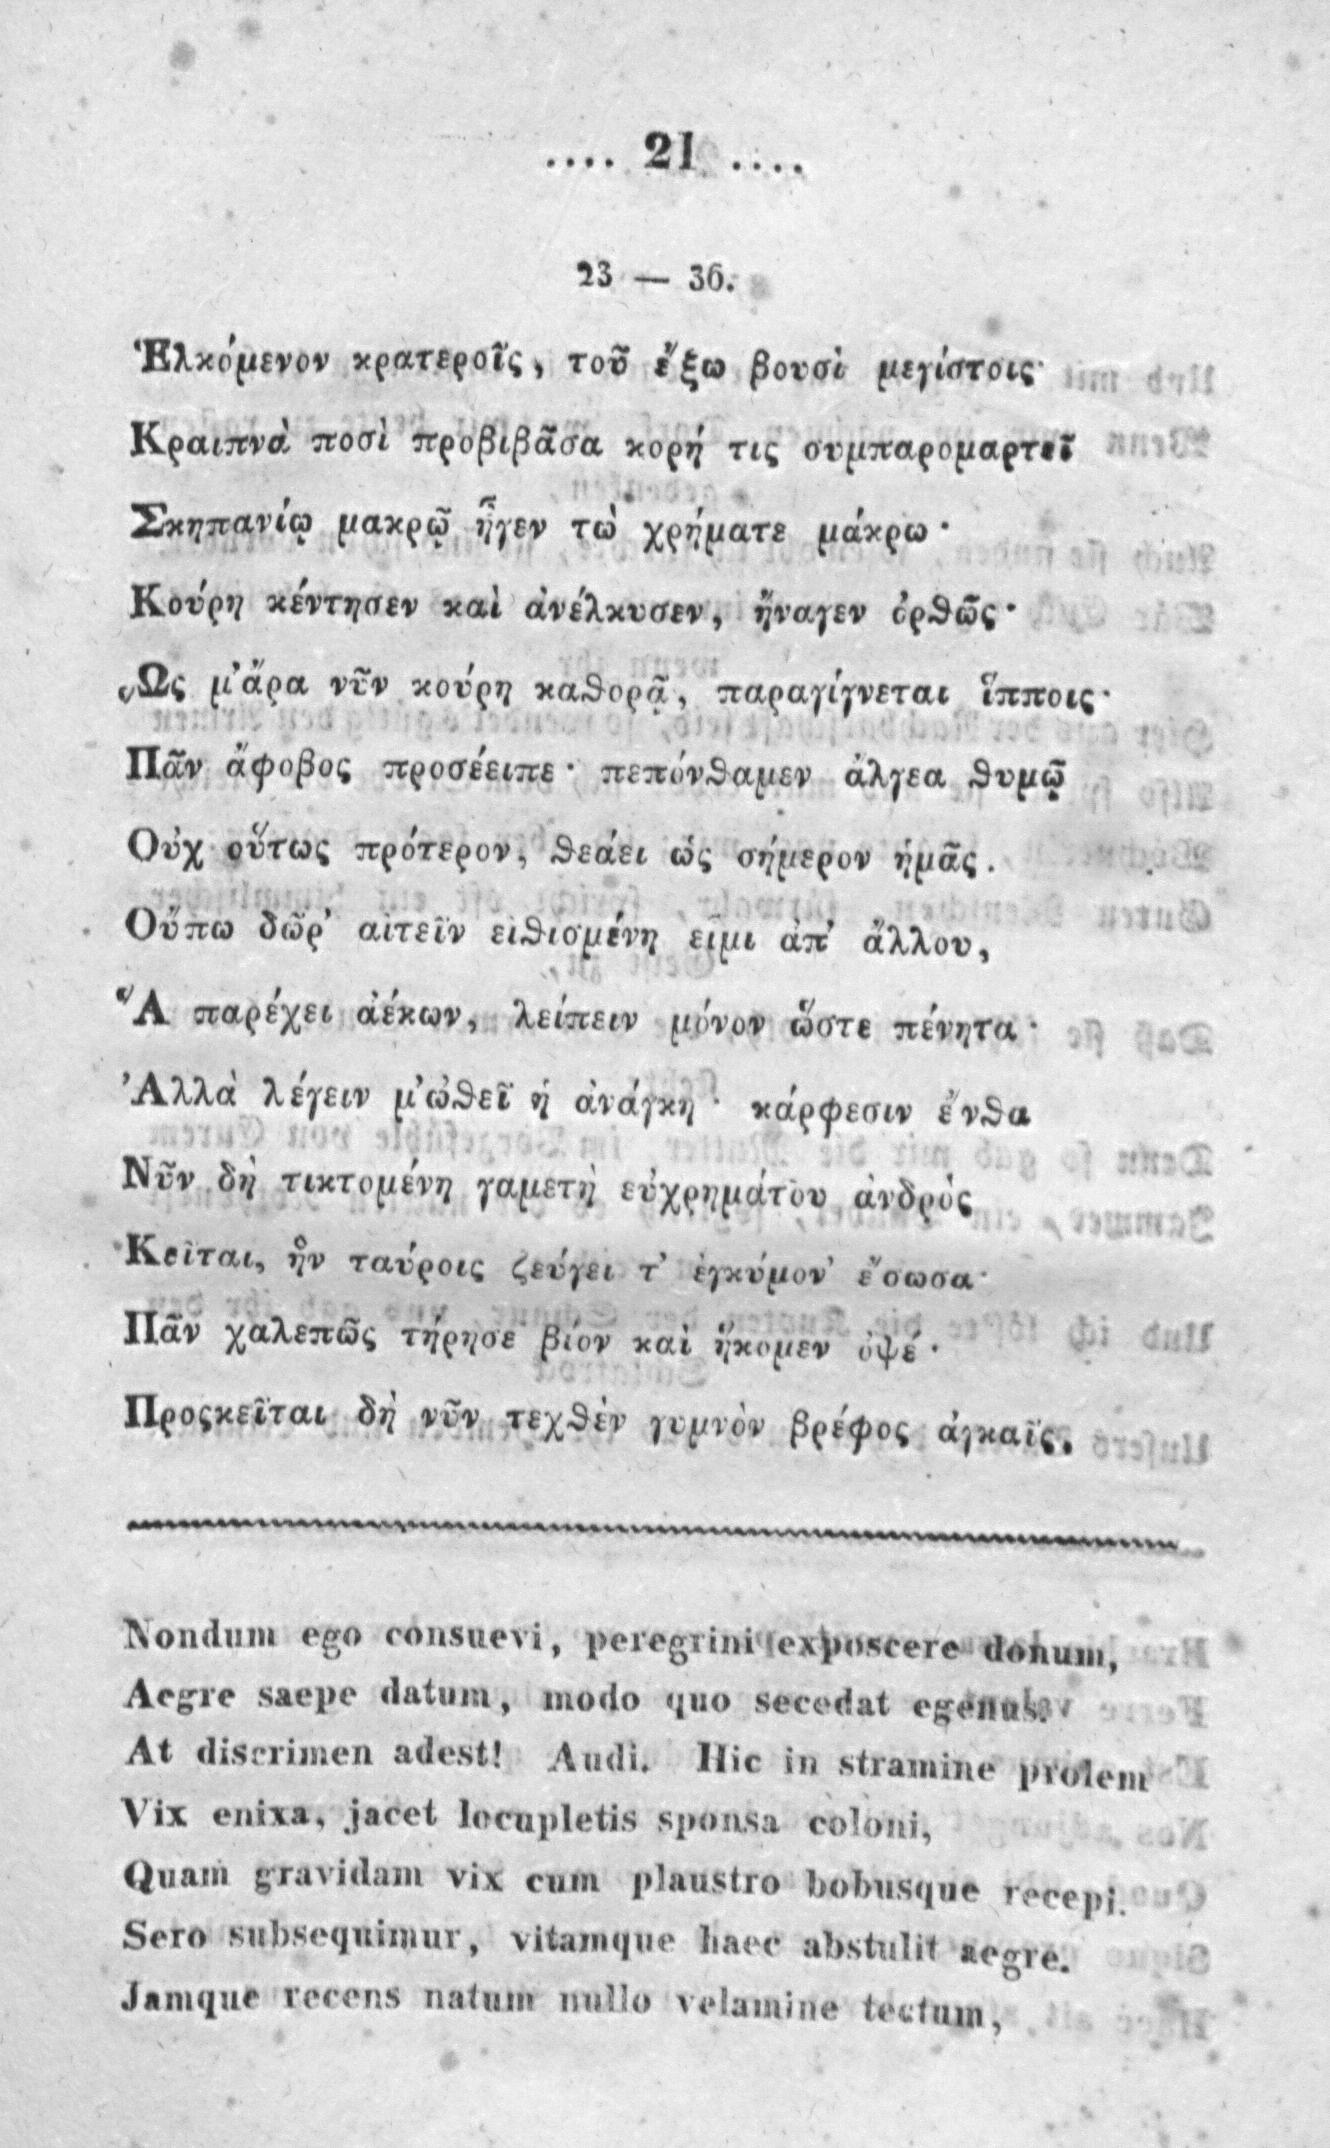 .... 21 ....
23 — 36.
Ἑλκόμενον κρατεροῖς, τοῦ ἔξω βουσὶ μεγίστοις·
Κραιπνὰ ποσὶ προβιβᾶσα κορή τις συμπαρομαρτεῖ
Σκηπανίῳ μακρῷ ἦγεν τὼ χρήματε μάκρω·
Κούρη κέντησεν καὶ ἀνέλκυσεν, ἤναγεν ὀρθῶς·
Ὡς μ'ἄρα νῦν κούρη καθορᾷ, παραγίγνεται ἵπποις·
Πᾶν ἄφοβος προσέειπε· πεπόνθαμεν ἄλγεα θυμῷ
Οὐχ οὕτως πρότερον, θεάει ὡς σήμερον ἡμᾶς.
Οὔπω δῶρ' αἰτεῖν εἰθισμένη εἶμι ἀπ' ἄλλου,
Ἃ παρέχει ἀέκων, λείπειν μόνον ὥστε πένητα·
Ἀλλὰ λέγειν μ'ὠθεῖ ἡ ἀνάγκη· κάρφεσιν ἔνθα
Νῦν δὴ τικτομένη γαμετὴ εὐχρημάτου ἀνδρὸς
Κεῖται, ἣν ταύροις ζεύγει τ' ἐγκύμον' ἔσωσα·
Πᾶν χαλεπῶς τήρησε βίον καὶ ἥκομεν ὀψέ·
Προςκεῖται δὴ νῦν τεχθὲν γυμνὸν βρέφος ἀγκαῖς.
Nondum ego consuevi, peregrini exposcere donum,
Aegre saepe datum, modo quo secedat egenus.
At discrimen adest! Audi. Hic in stramine prolem
Vix enixa, jacet locupletis sponsa coloni,
Quam gravidam vix cum plaustro bobusque recepi.
Sero subsequimur, vitamque haec abstulit aegre.
Jamque recens natum nullo velamine tectum,